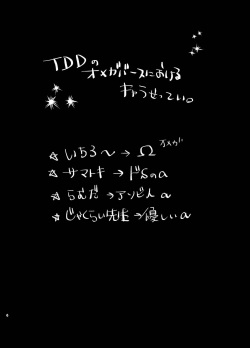 TDDの
オメガバースにおける
きゃらせってい。
☆いちろ〜→Ω オメガ
☆サマトキ→ドSのα
☆らむだ→アソビ人α
☆じゃくらい先生→優しいα